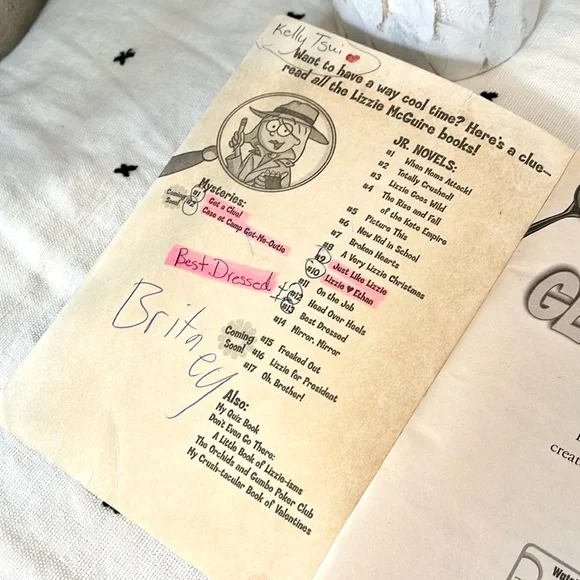 Kelly Tsui
Want to have a way cool time? Here's a clue—
read all the Lizzie McGuire books!
Mysteries:
#1 Get a Clue!
Coming Soon! #2 Case at Camp Get-Me-Outie
Best Dressed
Britney
JR. NOVELS:
#1 When Moms Attack!
#2 Totally Crushed!
#3 Lizzie Goes Wild
#4 The Rise and Fall
of the Kate Empire
#5 Picture This
#6 New Kid in School
#7 Broken Hearts
#8 A Very Lizzie Christmas
#9 Just Like Lizzie
#10 Lizzie ♥ Ethan
#11 On the Job
#12 Head Over Heels
#13 Best Dressed
#14 Mirror, Mirror
Coming Soon!
#15 Freaked Out
#16 Lizzie for President
#17 Oh, Brother!
Also:
My Quiz Book
Don't Even Go There:
A Little Book of Lizzie-isms
The Orchids and Gumbo Poker Club
My Crush-tacular Book of Valentines